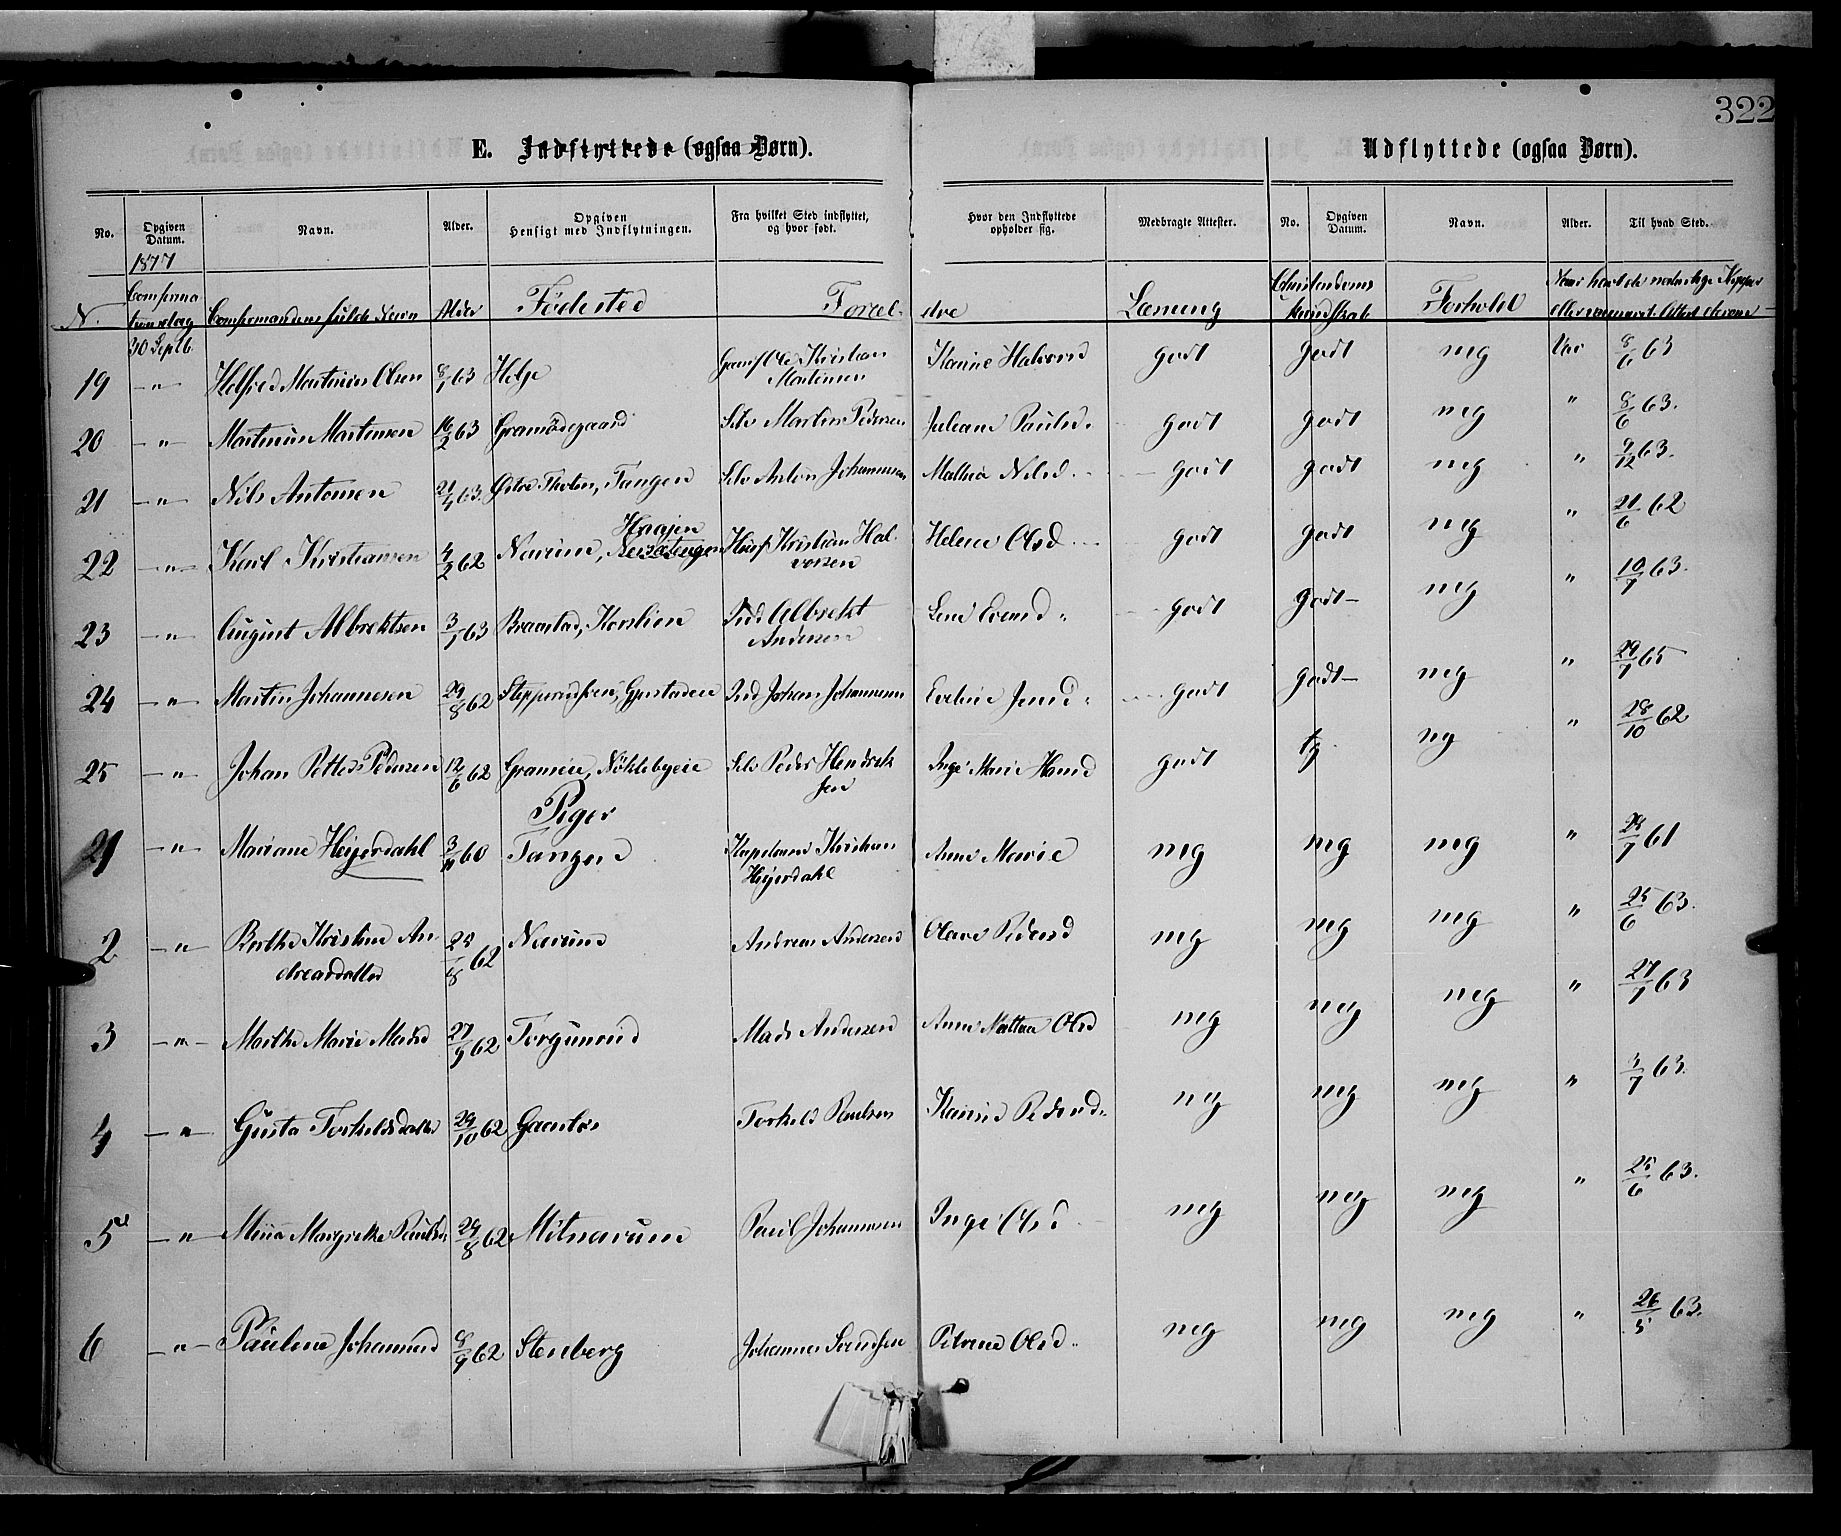 322
E. Indflyttede (ogsaa Børn).
Udflyttede (ogsaa Børn).
No. Opgiven Datum. Navn. Alder. Opgiven Hensigt med Indflytningen. Fra hvilket Sted indflyttet, og hvor født. Hvor den Indflyttede opholder sig. Medbragte Attester. No. Opgiven Datum. Navn. Alder. Til hvad Sted.
1877
N. Confirmandens fulde Navn Alder Fødested Forældre Læsning Christendoms Kundskab Forhold
30 Septb.
19 -"- Helfred Martinius Olsen 8/1 63 Helge Ole Kristian Martinsen Karine Halvorsd godt godt mg Var 8/6 63
20 -"- Martinius Martinsen 16/2 63 Gramødegaard Selv Martin Pedersen Juliane Paulsd. godt godt mg " 8/6 63.
21 -"- Nils Antonsen 21/4 63 Tangen Selv Anton Johannesen Mathea Nilsd. godt godt mg " 9/12 63.
22 -"- Karl Kristiansen 4/2 62 Narum, Haajen Kristian Halvorsen Helene Olsd godt godt mg " 21/6 62
23 -"- August Albrektsen 3/1 63 Braastad, Ind Albrekt Andersen Lene Evensd. godt godt mg " 10/7 63.
24 -"- Martin Johannesen 29/8 62 Ind Johan Johannesen Eveline Jensd. godt godt mg " 29/7 65
25 -"- Johan Petter Pedersen 12/6 62 Grameie, Nøklebyeie Selv Peder Hendriksen Inge Marie Hansd godt tg mg " 28/10 62
Piger
1 -"- Mariane Heyerdahl 3/11 60 Tangen Kapelan Kristian Heyerdahl Anne Marie mg mg mg " 28/7 61
2 -"- Berthe Kristine Andreasdatter 25/8 62 Narum Andreas Andersen Olave Pedersd mg mg mg " 25/6 63.
3 -"- Marthe Marie Madsd 27/9 62 Torgunrud Mads Andersen Anne Mathea Olsd mg mg mg " 27/7 63
4 -"- Gusta Torkildsdatter 29/10 62 Gaarder Torkild Paulsen Karine Pedersd. mg mg mg " 3/7 63.
5 -"- Mina Margrethe Paulsd. 29/8 62 Mitnarum Paul Johannesen Inge Olsd mg mg mg " 25/6 63.
6 -"- Pauline Johannesd 8/9 62 Stenberg Johannes Svendsen Petrine Olsd. mg mg mg " 26/5 63.